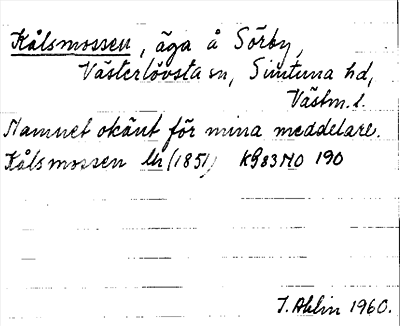 Kålsmossen, äga å Sörby,
Västerlövsta sn, Simtuna hd,
Västm. l.
Namnet okänt för mina meddelare.
Kålsmossen Lm (1851) kg 83 MO 190
I. Ahlin 1960.